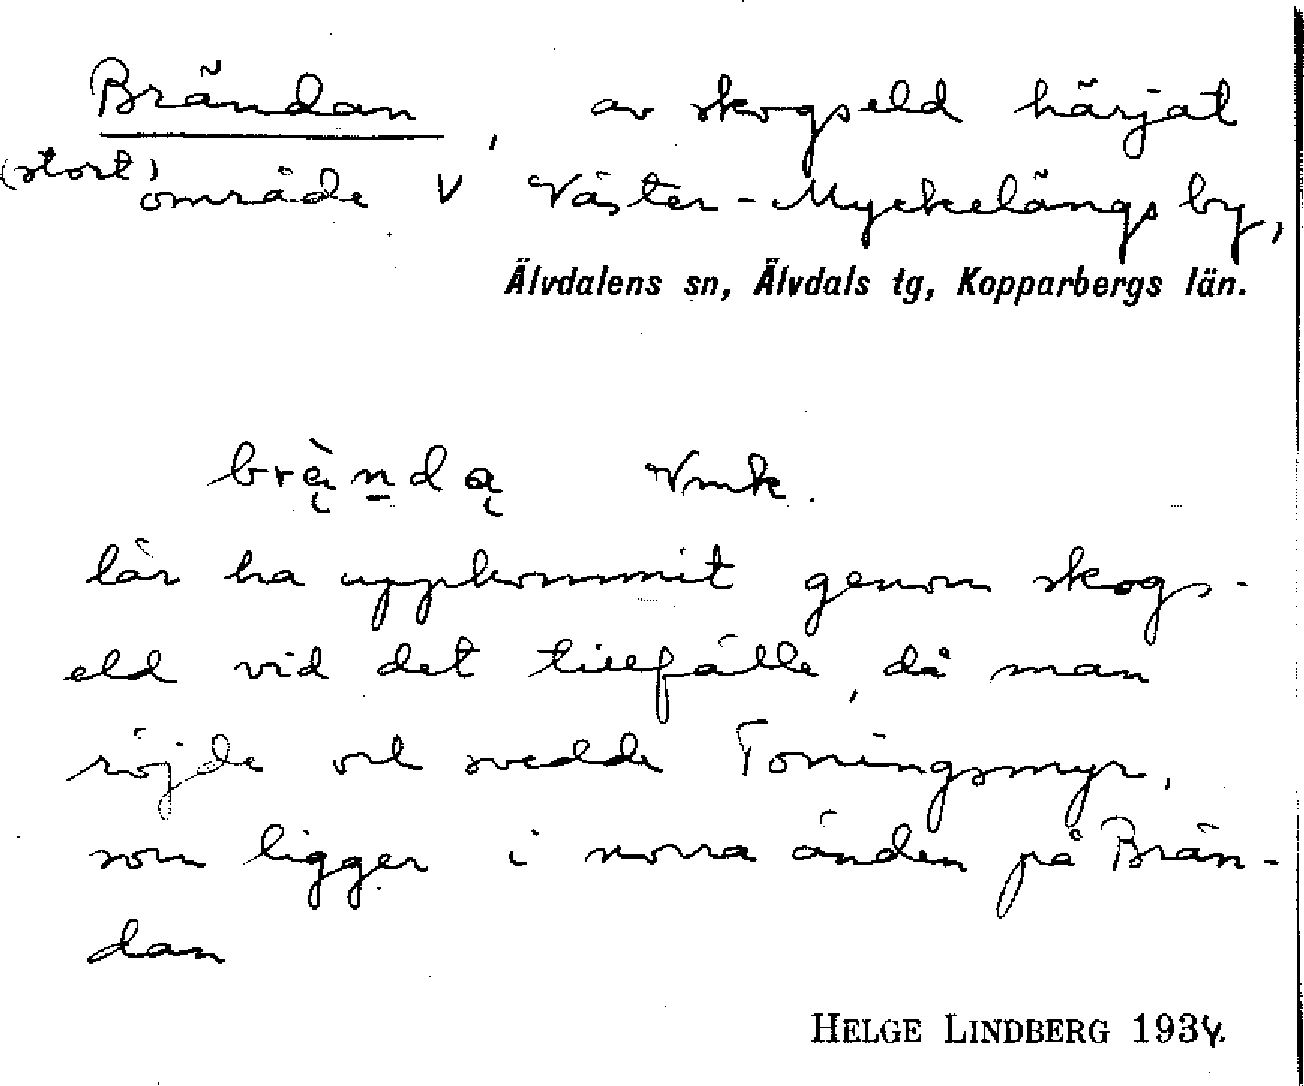 Brändan, av skogseld härjat
(stort) område V Väster-Myckelängs by,
Älvdalens sn, Älvdals tg, Kopparbergs län.
brą̈̀nḏą Vmk.
lär ha uppkommit genom skogs-
eld vid det tillfälle, då man
röjde och svedde Toningsmyr,
som ligger i norra änden på Brän-
dan
HELGE LINDBERG 1934.